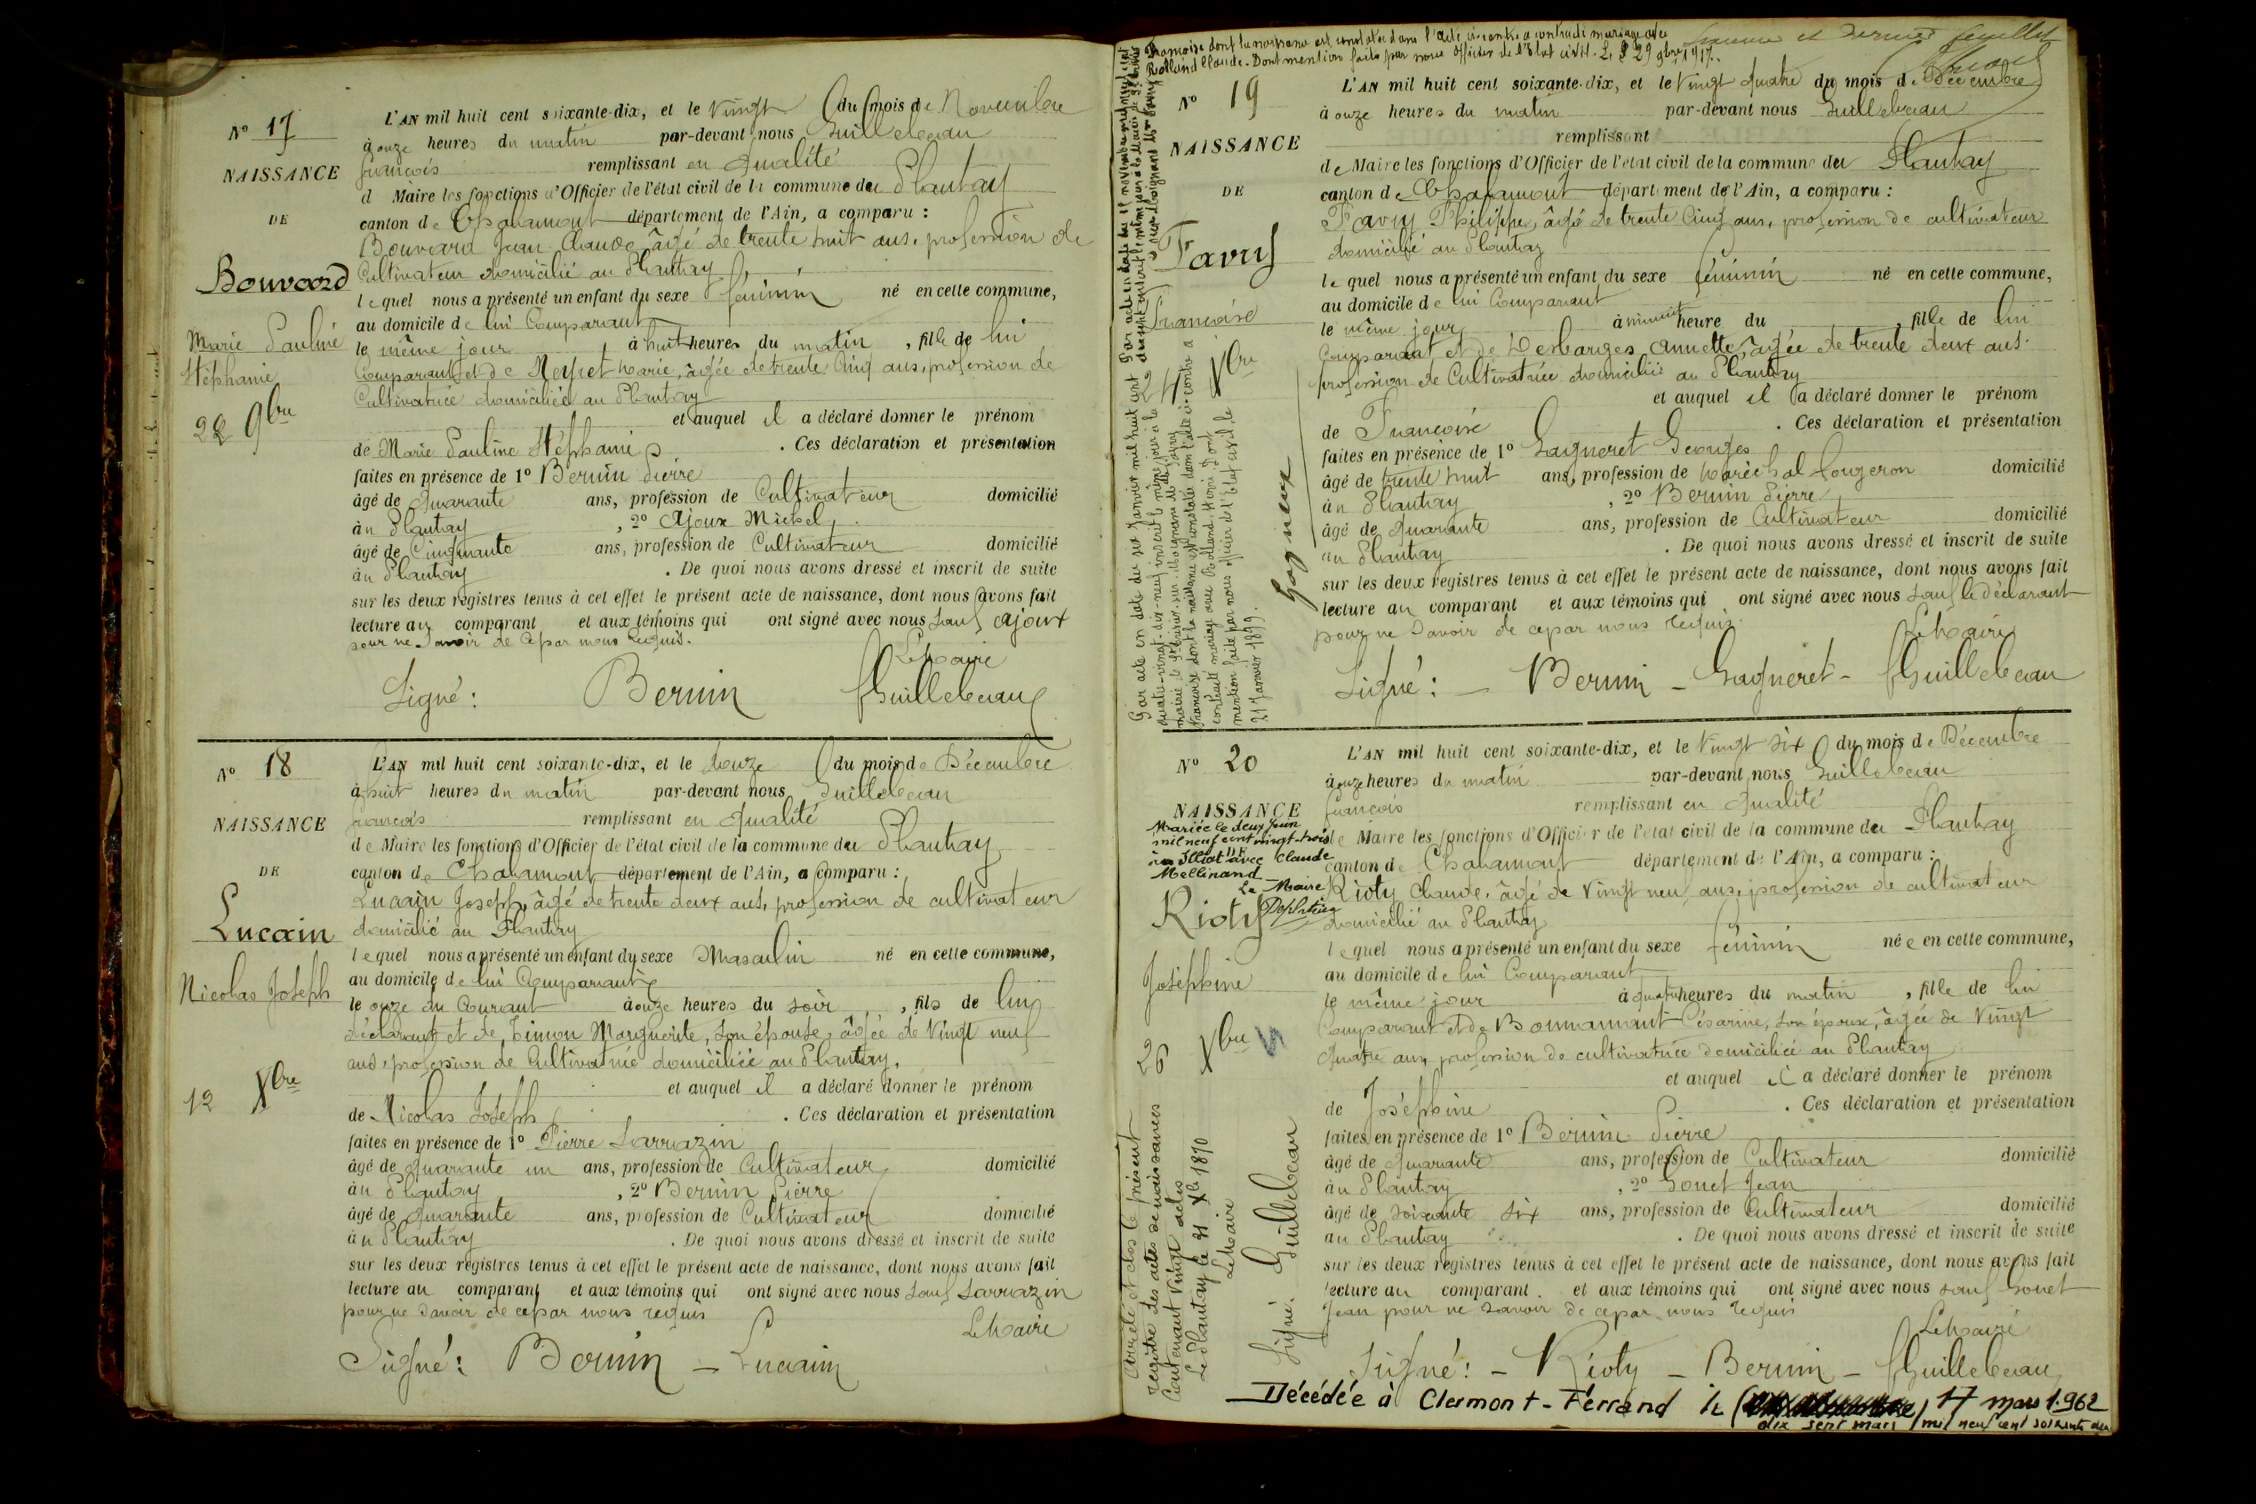 N° 17
NAISSANCE
DE
Bouvard
Marie Pauline
Stéphanie
22 9bre
L'AN mil huit cent soixante-dix, et le Vingt du mois de Novembre
à onze heures du matin par-devant nous Guillebeau
françois remplissant en qualité
d Maire les fonctions d'Officier de l'état civil de la commune du Plantay
canton de Chalamont département de l'Ain, a comparu :
Bouvard Jean Claude âgé de trente huit ans, profession de
Cultivateur domicilié au Plantay
lequel nous a présenté un enfant du sexe féminin né en cette commune,
au domicile de lui Comparant
le même jour à huit heures du matin, fille de lui
Comparant et de Marie, âgée de trente Cinq ans, profession de
Cultivatrice domiciliée au Plantay
et auquel il a déclaré donner le prénom
de Marie Pauline Stéphanie . Ces déclaration et présentation
faites en présence de 1° Bernin Pierre
âgé de Quarante ans, profession de Cultivateur domicilié
au Plantay , 2° Ajoux Michel,
âgé de Cinquante ans, profession de Cultivateur domicilié
au Plantay . De quoi nous avons dressé et inscrit de suite
sur les deux registres tenus à cet effet le présent acte de naissance, dont nous avons fait
lecture au comparant et aux témoins qui ont signé avec nous sauf Ajoux
pour ne savoir de ce par nous requis.
Le Maire
Signé : Bernin fGuillebeau
N° 18
NAISSANCE
DE
Lucain
Nicolas Joseph
12 Xbre
L'AN mil huit cent soixante-dix, et le douze du mois de Décembre
à huit heures du matin par-devant nous Guillebeau
françois remplissant en qualité
de Maire les fonctions d'Officier de l'état civil de la commune du Plantay
canton de Chalamont département de l'Ain, a comparu :
Lucain Joseph, âgé de trente deux ans, profession de cultivateur
domicilié au Plantay
lequel nous a présenté un enfant du sexe Masculin né en cette commune,
au domicile de lui Comparant
le onze du Courant à onze heures du soir, fils de lui
déclarant et de Simon Marguerite, son épouse, âgée de Vingt neuf
ans, profession de Cultivatrice domiciliée au Plantay.
et auquel il a déclaré donner le prénom
de Nicolas Joseph . Ces déclaration et présentation
faites en présence de 1° Pierre Sarrazin
âgé de Quarante un ans, profession de Cultivateur domicilié
au Plantay , 2° Bernin Pierre
âgé de Quarante ans, profession de Cultivateur domicilié
au Plantay . De quoi nous avons dressé et inscrit de suite
sur les deux registres tenus à cet effet le présent acte de naissance, dont nous avons fait
lecture au comparant et aux témoins qui ont signé avec nous sauf Sarrazin
pour ne savoir de ce par nous requis
Le Maire
Signé : Bernin – Lucain
Françoise dont la naissance est constatée dans l'acte ci-contre a contracté mariage avec
Rolland Claude. Dont mention faite par nous Officier de l'Etat civil. Le 29 9bre 1917.
et dernier feuillet
N° 19
NAISSANCE
DE
Favry
Françoise
24 Xbre
Par acte en date du six Janvier mil huit cent
quatre-vingt-dix-neuf inscrit le même jour à la
Françoise dont la naissance est constatée dans l'acte ci-contre a
contracté mariage avec Rolland Henri Dont
mention faite par nous officier de l'Etat civil le
21 Janvier 1899.
Gagneux
L'AN mil huit cent soixante-dix, et le Vingt Quatre du mois de Décembre
à onze heures du matin par-devant nous Guillebeau
remplissant
de Maire les fonctions d'Officier de l'état civil de la commune du Plantay
canton de Chalamont département de l'Ain, a comparu :
Favry Philippe, âgé de trente Cinq ans, profession de cultivateur
domicilié au Plantay
lequel nous a présenté un enfant du sexe féminin né en cette commune,
au domicile de lui Comparant
le même jour à minuit heure du , fille de lui
Comparant et de Desbarges Annette, âgée de trente deux ans.
profession de Cultivatrice domiciliée au Plantay
et auquel il a déclaré donner le prénom
de Françoise . Ces déclaration et présentation
faites en présence de 1° Gagneret Georges
âgé de trente huit ans, profession de Maréchal domicilié
au Plantay , 2° Bernin Pierre,
âgé de Quarante ans, profession de Cultivateur domicilié
au Plantay . De quoi nous avons dressé et inscrit de suite
sur les deux registres tenus à cet effet le présent acte de naissance, dont nous avons fait
lecture au comparant et aux témoins qui ont signé avec nous sauf le déclarant
pour ne savoir de ce par nous requis.
Le Maire
Signé : – Bernin – Gagneret – fGuillebeau
N° 20
NAISSANCE
Mariée le deux Juin
mil neuf cent vingt-trois
avec Claude
Mellinand
Le Maire
Rioty
Joséphine
26 Xbre
L'AN mil huit cent soixante-dix, et le Vingt Six du mois de Décembre
à onze heures du matin par-devant nous Guillebeau
françois remplissant en qualité
de Maire les fonctions d'Officier de l'état civil de la commune du Plantay
canton de Chalamont département de l'Ain, a comparu :
Rioty Claude, âgé de Vingt neuf ans, profession de cultivateur
domicilié au Plantay
lequel nous a présenté un enfant du sexe féminin née en cette commune,
au domicile de lui Comparant
le même jour à quatre heures du matin, fille de lui
Comparant et de Bonnamant Césarine, son épouse, âgée de Vingt
Quatre ans, profession de cultivatrice domiciliée au Plantay
et auquel il a déclaré donner le prénom
de Joséphine . Ces déclaration et présentation
faites en présence de 1° Bernin Pierre
âgé de Quarante ans, profession de Cultivateur domicilié
au Plantay , 2° Gonet Jean
âgé de soixante six ans, profession de Cultivateur domicilié
au Plantay . De quoi nous avons dressé et inscrit de suite
sur les deux registres tenus à cet effet le présent acte de naissance, dont nous avons fait
lecture au comparant et aux témoins qui ont signé avec nous sauf Gonet
Jean pour ne savoir de ce par nous requis
Le Maire
Signé : – Rioty – Bernin – fGuillebeau
Arrêté et clos le présent
registre des actes de naissances
Contenant Vingt actes
Le Plantay le 31 Xbre 1870
Le Maire
Signé. Guillebeau
Décédée à Clermont-Ferrand le 17 mars 1.962
dix sept mars mil neuf cent soixante deux